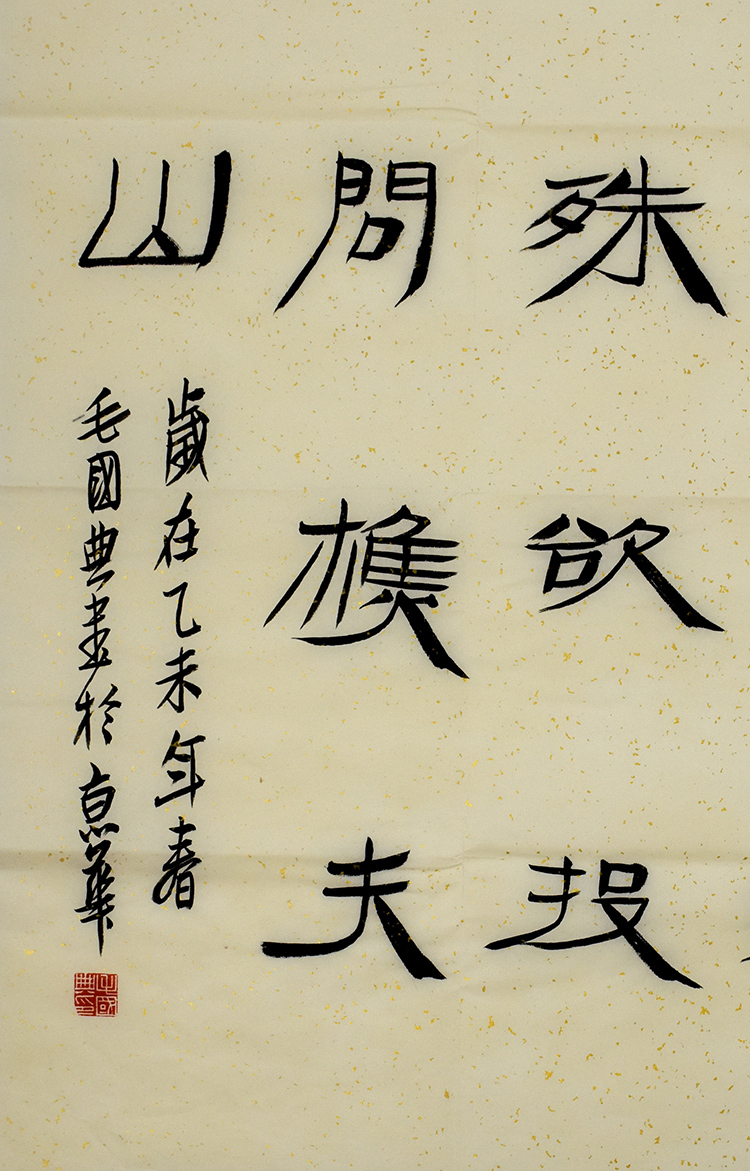 殊欲投
問樵夫
山
歲在乙未年春
毛國典書於京華
毛國典印